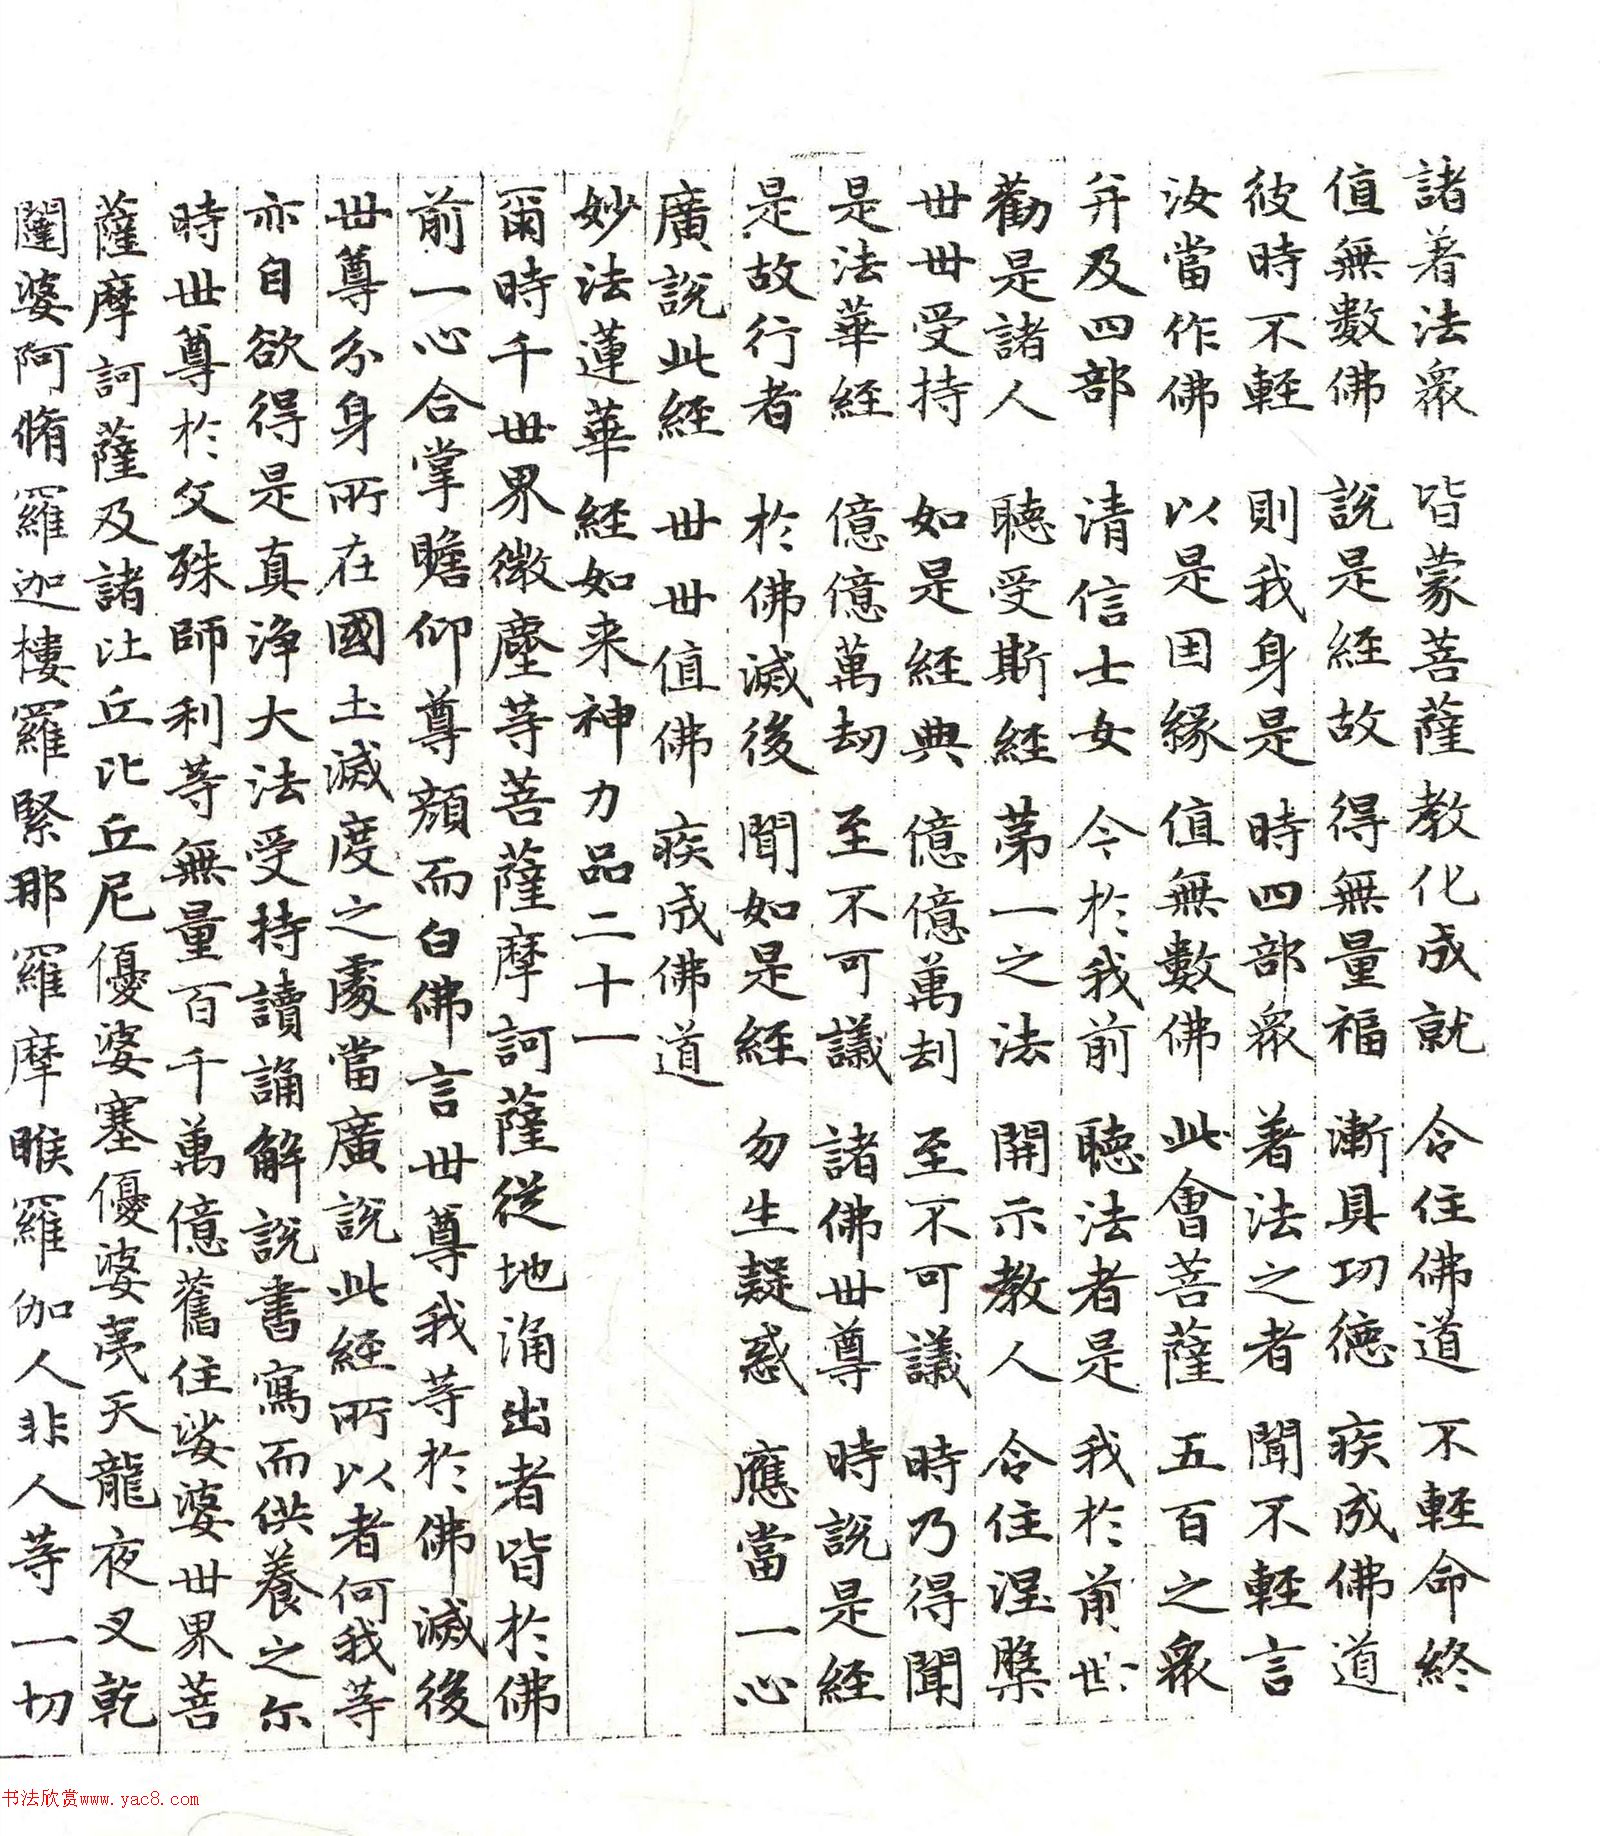 諸著法衆 皆蒙菩薩 教化成就 令住佛道 不輕命終
值無數佛 說是經故 得無量福 漸具功德 疾成佛道
彼時不輕 則我身是 時四部衆 著法之者 聞不輕言
汝當作佛 以是因緣 值無數佛 此會菩薩 五百之衆
并及四部 清信士女 今於我前 聽法者是 我於前世
勸是諸人 聽受斯經 第一之法 開示教人 令住涅槃
世世受持 如是經典 億億萬劫 至不可議 時乃得聞
是法華經 億億萬劫 至不可議 諸佛世尊 時說是經
是故行者 於佛滅後 聞如是經 勿生疑惑 應當一心
廣說此經 世世值佛 疾成佛道
妙法蓮華經如来神力品二十一
爾時千世界微塵等菩薩摩訶薩從地涌出者皆於佛
前一心合掌瞻仰尊顏而白佛言世尊我等於佛滅後
世尊分身所在國土滅度之處當廣說此經所以者何我等
亦自欲得是真淨大法受持讀誦解說書寫而供養之尔
時世尊於文殊師利等無量百千萬億舊住娑婆世界菩
薩摩訶薩及諸比丘比丘尼優婆塞優婆夷天龍夜叉乾
闥婆阿脩羅迦樓羅緊那羅摩睺羅伽人非人等一切
书法欣赏www.yac8.com